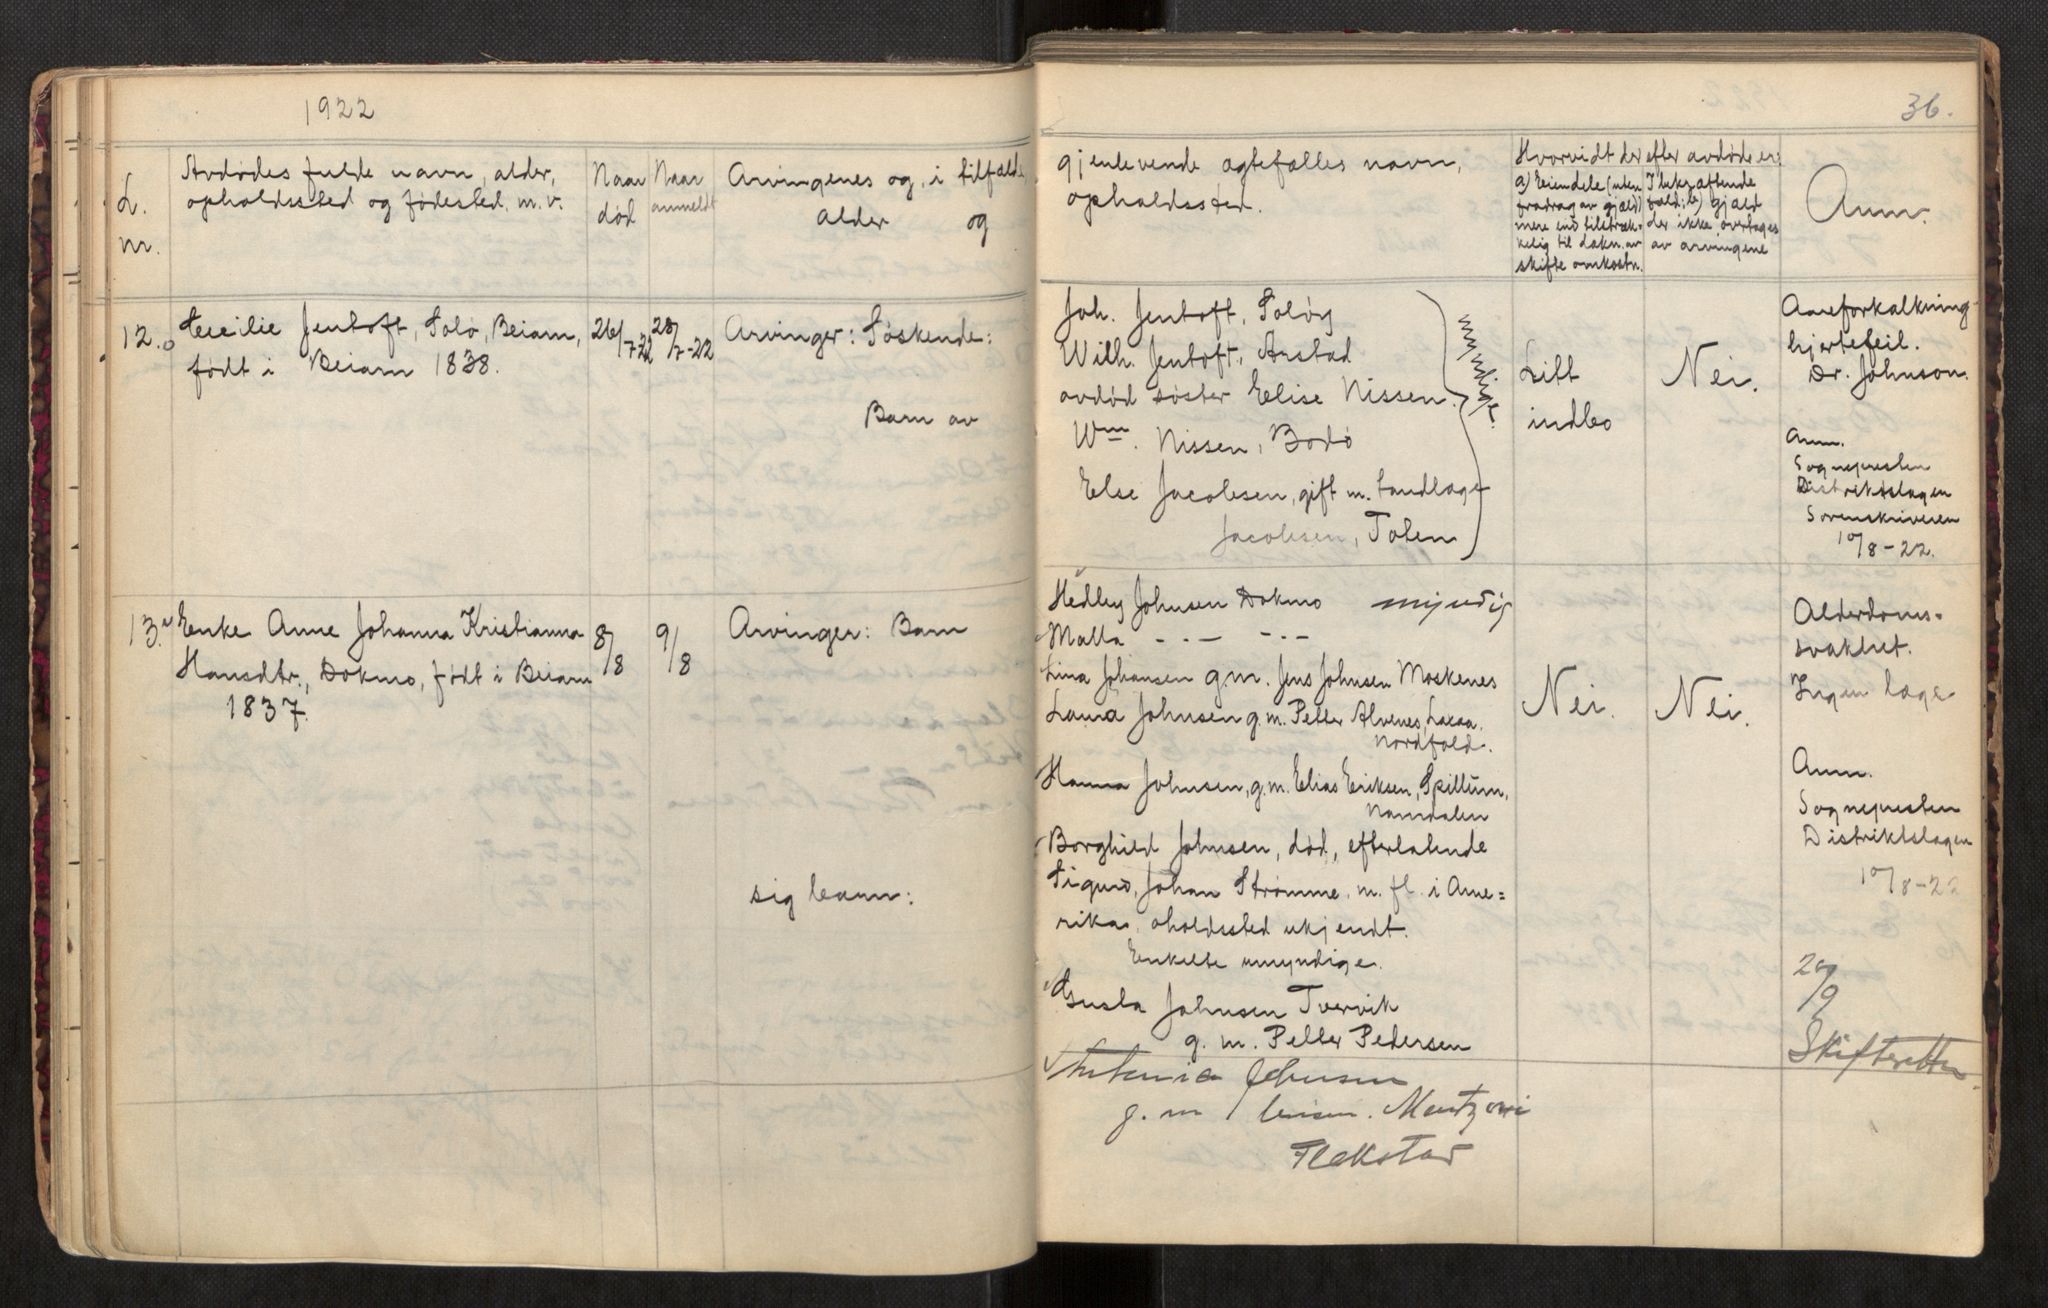 1922
36.
L.
nr.
Avdødes fulde navn, alder,
opholdssted og fødested, m.v.
Naar
død
Naar
anmeldt
Arvingenes og, i tilfælde,
alder og
gjenlevende ægtefælles navn,
opholdssted.
Hvorvidt der efter avdøde er:
a) Eiendele (uten
fradrag av gjæld)
mere end tilstræk-
kelig til dækn. av
skifteomkostn.
I bekræftende
fald: b) gjæld
der ikke overtages
av arvingene
Anm.
12.
Cecilie Jentoft, Solø, Beiarn,
født i Beiarn 1838.
26/7-22
28/7-22
Arvinger: Søskende:
Barn av
Joh. Jentoft, Soløy
Wilh. Jentoft, Arstad
avdød søster Elise Nissen.
Wm. Nissen, Bodø
Else Jacobsen, gift m. tandlæge
Jacobsen, Toten
myndige.
Litt
indbo
Nei.
Aareforkalkning
hjertefeil.
Dr. Johnson.
Anm.
Sognepresten
Distriktslægen
Sorenskriveren
10/8-22.
13.
Enke Anne Johanna Kristianna
Hansdtr., Dokmo, født i Beiarn
1837.
8/8
9/8
Arvinger: Barn
sig barn:
Hedley Johnsen Dokmo myndig
Malla -.- -.-
Lina Johansen g.m. Jens Johnsen Moskenes
Laura Johnsen g.m. Petter Alvenes,
Nordfold.
Hanna Johnsen, g.m. Elias Eriksen, Spillum,
Namdalen
Borghild Johnsen, død, efterlatende
Sigurd, Johan Strømme, m. fl. i Ame=
rika, oholdssted ukjendt.
Enkelte umyndige.
Gusta Johnsen Tvervik
g. m. Petter Pedersen
Antonia Johnsen
g. m
Flekstad
Nei.
Nei.
Alderdoms-
svakhet.
Ingen læge
Anm.
Sognepresten
Distriktslægen
10/8-22
20/9
Skifteretten